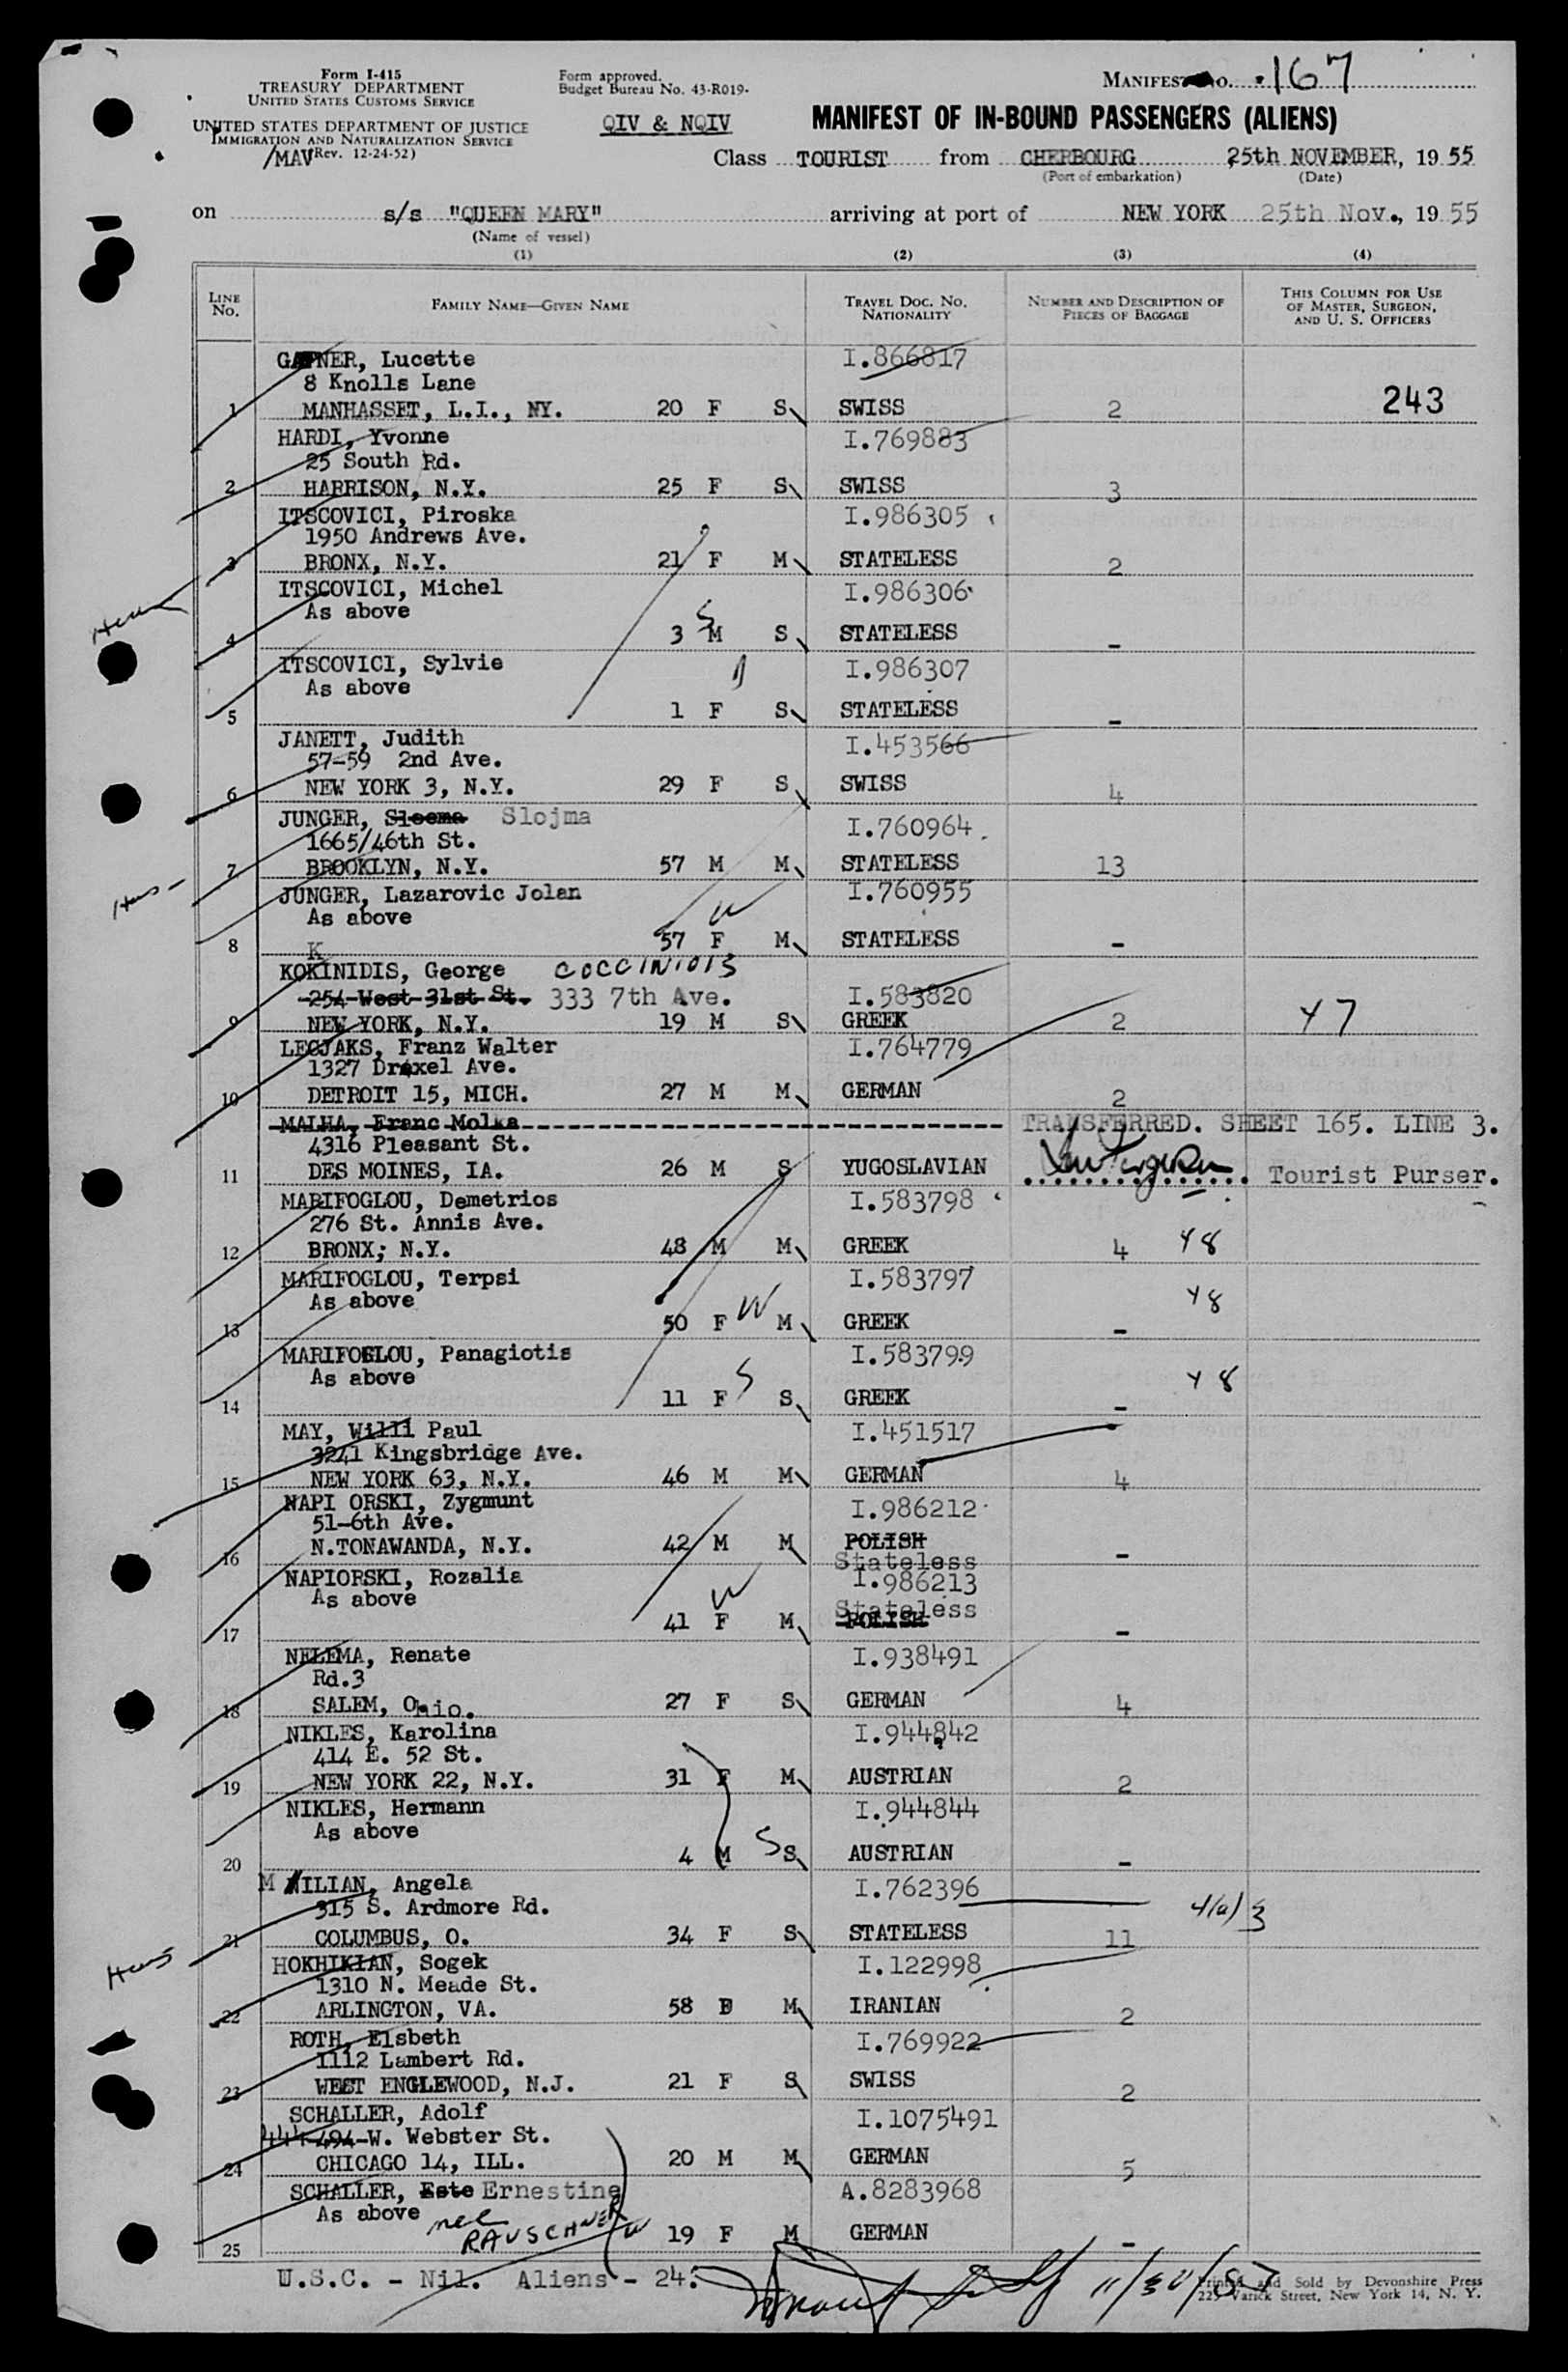 Form I-415
TREASURY DEPARTMENT
UNITED STATES CUSTOMS SERVICE
UNITED STATES DEPARTMENT OF JUSTICE
IMMIGRATION AND NATURALIZATION SERVICE
/MAV Rev. 12-24-52)
Form approved.
Budget Bureau No. 43-R019-
QIV & NQIV
MANIFEST No. 167
MANIFEST OF IN-BOUND PASSENGERS (ALIENS)
Class TOURIST from CHERBOURG 25th NOVEMBER, 19 55
(Port of embarkation) (Date)
on s/s "QUEEN MARY" arriving at port of NEW YORK 25th Nov., 19 55
(Name of vessel)
(1) (2) (3) (4)
LINE No. FAMILY NAME—GIVEN NAME TRAVEL DOC. No. NATIONALITY NUMBER AND DESCRIPTION OF PIECES OF BAGGAGE THIS COLUMN FOR USE OF MASTER, SURGEON, AND U. S. OFFICERS
GAFNER, Lucette I.866817
8 Knolls Lane
1 MANHASSET, L.I., NY. 20 F S SWISS 2 243
HARDI, Yvonne I.769883
25 South Rd.
2 HARRISON, N.Y. 25 F S SWISS 3
ITSCOVICI, Piroska I.986305
1950 Andrews Ave.
3 BRONX, N.Y. 21 F M STATELESS 2
ITSCOVICI, Michel I.986306
As above
4 3 M S STATELESS -
ITSCOVICI, Sylvie I.986307
As above
5 1 F S STATELESS -
JANETT, Judith I.453566
57-59 2nd Ave.
6 NEW YORK 3, N.Y. 29 F S SWISS 4
JUNGER, Sloema Slojma I.760964
1665/46th St.
7 BROOKLYN, N.Y. 57 M M STATELESS 13
JUNGER, Lazarovic Jolan I.760955
As above
8 57 F W M STATELESS -
K
KOKINIDIS, George COCCINIDIS
254 West 31st St. 333 7th Ave. I.583820
9 NEW YORK, N.Y. 19 M S GREEK 2 Y7
LECJAKS, Franz Walter I.764779
1327 Drexel Ave.
10 DETROIT 15, MICH. 27 M M GERMAN 2
MALHA, Franc Molka TRANSFERRED. SHEET 165. LINE 3.
4316 Pleasant St.
11 DES MOINES, IA. 26 M S YUGOSLAVIAN Tourist Purser.
MARIFOGLOU, Demetrios I.583798
276 St. Annis Ave.
12 BRONX; N.Y. 48 M M GREEK 4 Y8
MARIFOGLOU, Terpsi I.583797
As above Y8
13 50 F W M GREEK -
MARIFOGLOU, Panagiotis I.583799
As above Y8
14 11 F S S GREEK -
MAY, Willi Paul I.451517
3241 Kingsbridge Ave.
15 NEW YORK 63, N.Y. 46 M M GERMAN 4
NAPI ORSKI, Zygmunt I.986212
51-6th Ave.
16 N.TONAWANDA, N.Y. 42 M M POLISH -
Stateless
NAPIORSKI, Rozalia I.986213
As above Stateless
17 41 F W M POLISH -
NELEMA, Renate I.938491
Rd.3
18 SALEM, Ohio. 27 F S GERMAN 4
NIKLES, Karolina I.944842
414 E. 52 St.
19 NEW YORK 22, N.Y. 31 F M AUSTRIAN 2
NIKLES, Hermann I.944844
As above
20 4 M S S AUSTRIAN -
M ILIAN, Angela I.762396
315 S. Ardmore Rd. 4(a) 3
21 COLUMBUS, O. 34 F S STATELESS 11
HOKHIKIAN, Sogek I.122998
1310 N. Meade St.
22 ARLINGTON, VA. 58 M IRANIAN 2
ROTH, Elsbeth I.769922
1112 Lambert Rd.
23 WEST ENGLEWOOD, N.J. 21 F S SWISS 2
SCHALLER, Adolf I.1075491
444 494 W. Webster St.
24 CHICAGO 14, ILL. 20 M M GERMAN 5
SCHALLER, Este Ernestine A.8283968
As above nee
RAUSCHNER W
25 19 F M GERMAN -
U.S.C. - Nil. Aliens - 24.
Printed and Sold by Devonshire Press
225 Varick Street, New York 14, N. Y.